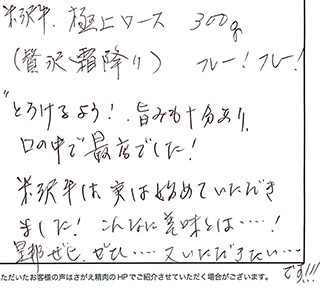 米沢牛 極上ロース 300g
(贅沢霜降り) フレー！フレー！
"とろけるよう！旨みも十分あり、
口の中で最高でした！
米沢牛は実は始めていただき
ました！こんなに美味とは……！
是非ぜひ、ぜひ……又いただきたい……
です!!!
いただいたお客様の声はさがえ精肉のHPでご紹介させていただく場合がございます。